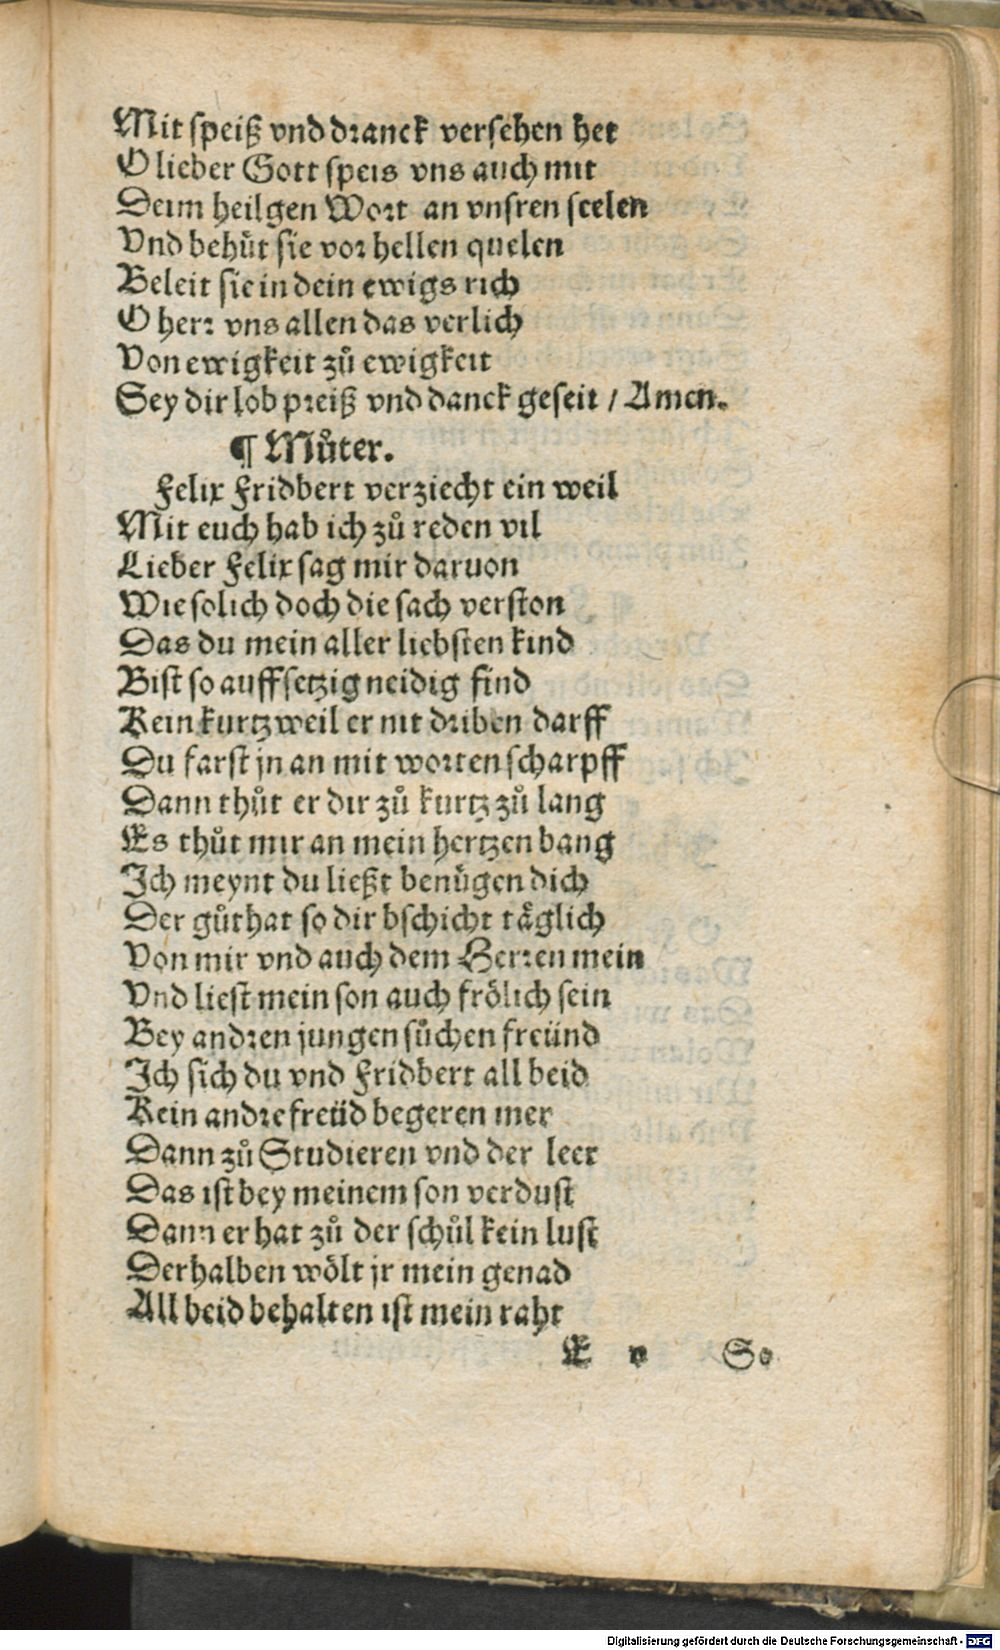 Mit speiß vnd dranck versehen het
O lieber Gott speis vns auch mit
Deim heilgen Wort an vnsren seelen
Vnd behuͤt sie vor hellen quelen
Beleit sie in dein ewigs rich
O herr vns allen das verlich
Von ewigkeit zuͦ ewigkeit
Sey dir lob preiß vnd danck geseit / Amen.
¶ Muͦter.
Felix Fridbert verziecht ein weil
Mit euch hab ich zuͦ reden vil
Lieber Felix sag mir daruon
Wie solich doch die sach verston
Das du mein aller liebsten kind
Bist so auffsetzig neidig find
Kein kurtzweil er nit driben darff
Du farst jn an mit worten scharpff
Dann thuͦt er dir zuͦ kurtz zuͦ lang
Es thuͦt mir an mein hertzen bang
Ich meynt du ließt benuͤgen dich
Der guͦthat so dir bschicht taͤglich
Von mir vnd auch dem Herren mein
Vnd liest mein son auch froͤlich sein
Bey andren jungen suͦchen freünd
Ich sich du vnd Fridbert all beid
Kein andre freüd begeren mer
Dann zuͦ Studieren vnd der leer
Das ist bey meinem son verdust
Dann er hat zuͦ der schuͦl kein lust
Derhalben woͤlt jr mein genad
All beid behalten ist mein raht
E v So
Digitalisierung gefördert durch die Deutsche Forschungsgemeinschaft - DFG